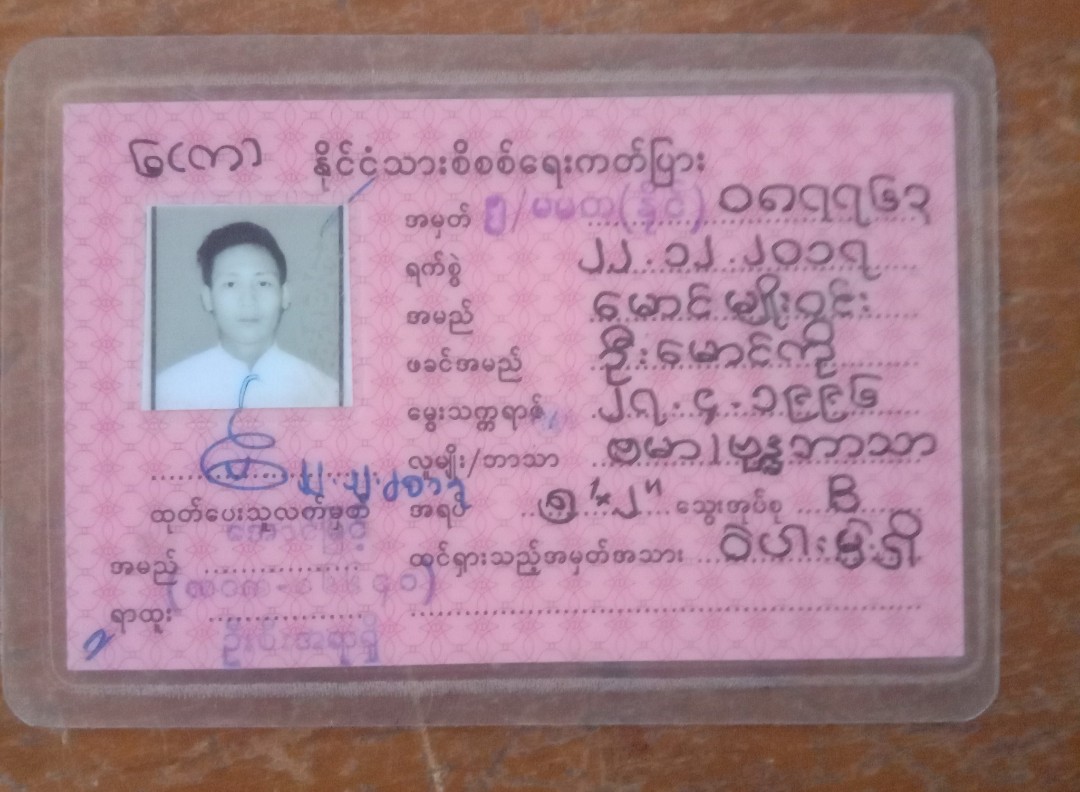 ၆(က) နိုင်ငံသားစိစစ်ရေးကတ်ပြား
အမှတ် ၅/မမတ(နိုင်) ၀၈၇၇၆၃
ရက်စွဲ ၂၂.၁၂.၂၀၁၇
အမည် မောင်မျိုးဝင်း
ဖခင်အမည် ဦးမောင်ကို
မွေးသက္ကရာဇ် ၂၇.၄.၁၉၉၆
လူမျိုး/ဘာသာ ဗမာ/ဗုဒ္ဓဘာသာ
အရပ် ၅'x၂" သွေးအုပ်စု B
ထင်ရှားသည့်အမှတ်အသား ဝဲပါးမှဲ့ရှိ
၂၂ ၁၂ ၂၀၁၇
ထုတ်ပေးသူလက်မှတ်
အမည်
ရာထူး